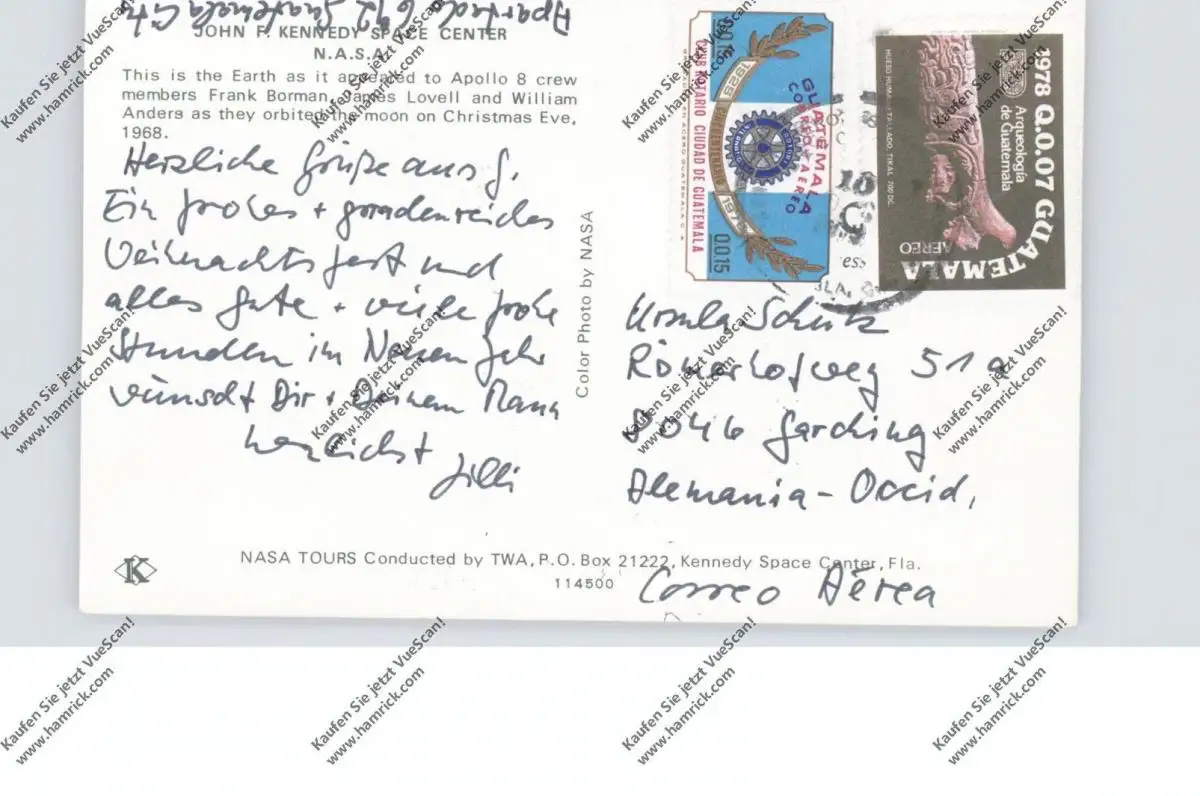 Apartad. 692 Guatemala City
JOHN F. KENNEDY SPACE CENTER
N.A.S.A.
This is the Earth as it appeared to Apollo 8 crew
members Frank Borman, James Lovell and William
Anders as they orbited the moon on Christmas Eve,
1968.
Herzliche Grüße aus G.
Ein frohes + gnadenreiches
Weihnachtsfest und
alles Gute + viele frohe
Stunden im Neuen Jahr
wünscht Dir + Deinem Mann
herzlichst
Color Photo by NASA
GUATEMALA
CORREO AEREO
CLUB ROTARIO CIUDAD DE GUATEMALA
CINCUENTENARIO
Q.0.15
Q.0.15
1978 Q.0.07 GUATEMALA
Arqueología
de Guatemala
HUESO HUMANO TALLADO, TIKAL 700 DC.
AEREO
GUATEMALA
Ursula Schütz
Römerhofweg 51a
8046 Garching
Alemania - Occid.
Correo Aérea
NASA TOURS Conducted by TWA, P.O. Box 21222, Kennedy Space Center, Fla.
114500
K
Kaufen Sie jetzt VueScan!
www.hamrick.com